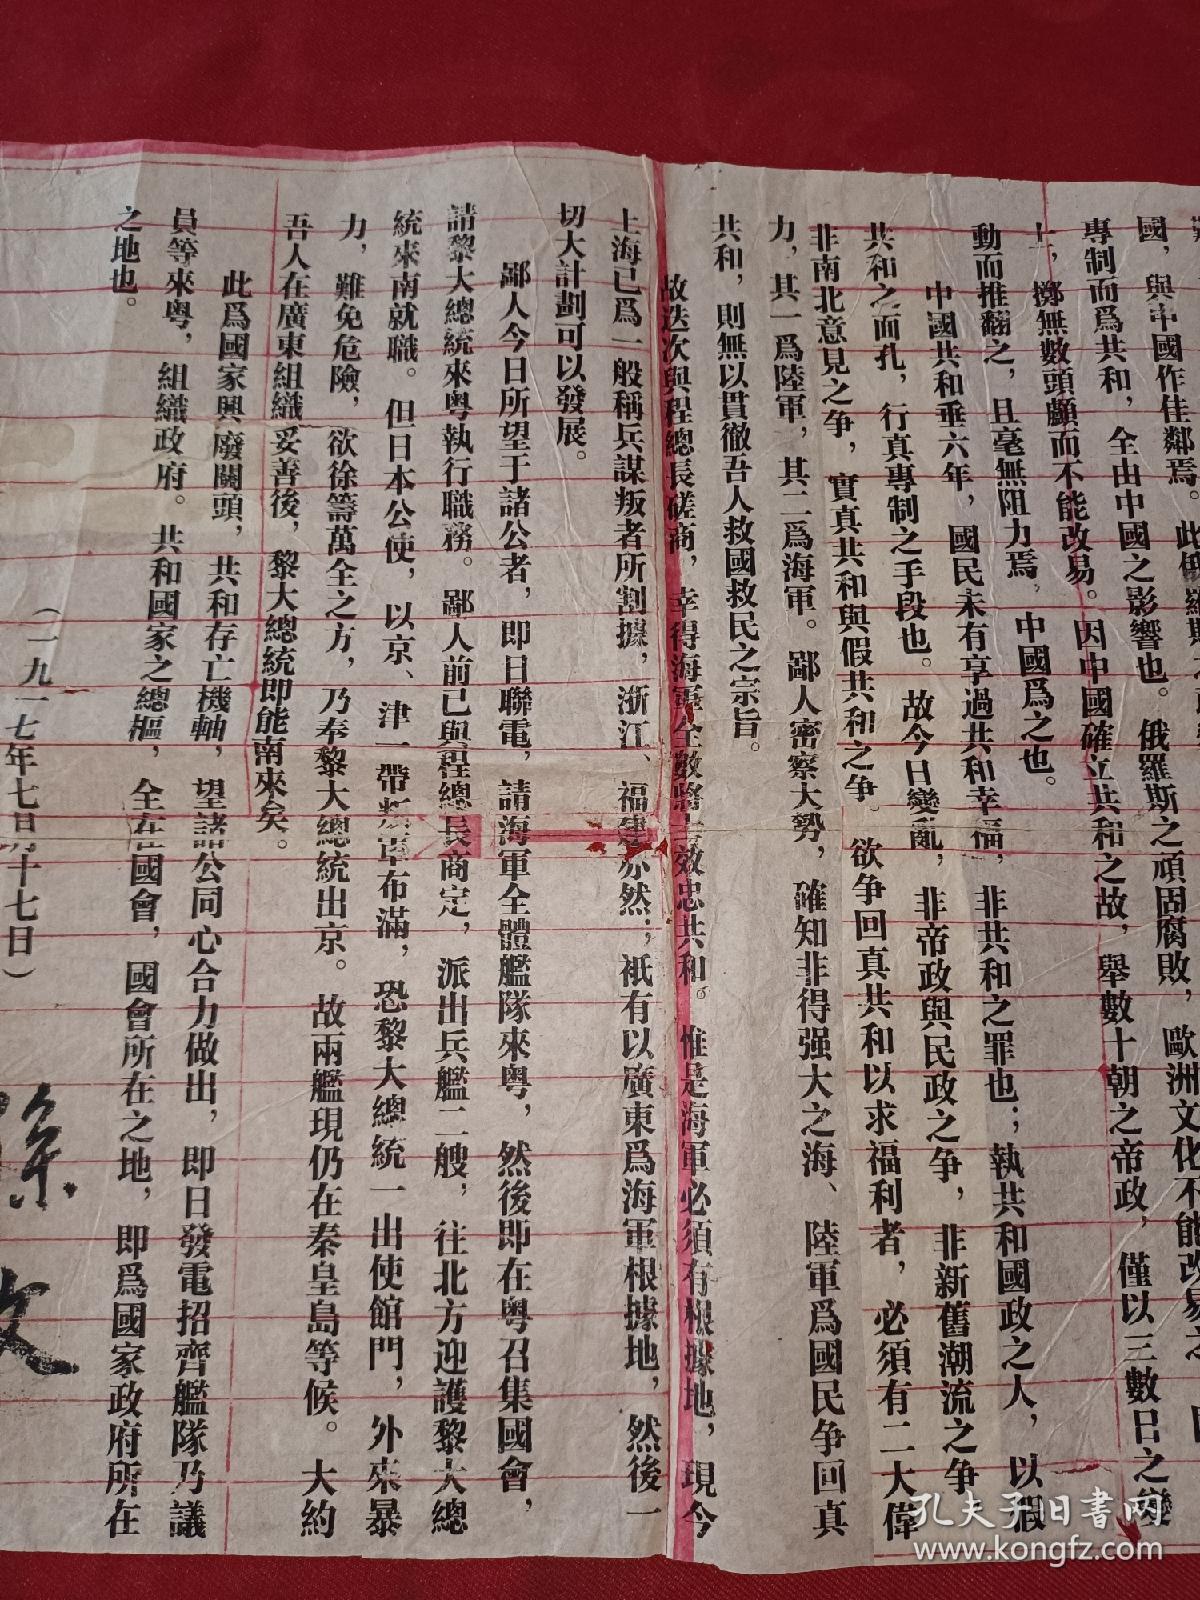 國，與中國作佳鄰焉。此俄羅斯
專制而爲共和，全由中國之影響也。俄羅斯之頑固腐敗，歐洲文化不能改易之
上，擲無數頭顱而不能改易。因中國確立共和之故，舉數十朝之帝政，僅以三數日之變
動而推翻之，且毫無阻力焉，中國爲之也。
中國共和垂六年，國民未有享過共和幸福，非共和之罪也；執共和國政之人，以假
共和之面孔，行真專制之手段也。故今日變亂，非帝政與民政之争，非新舊潮流之争，
非南北意見之争，實真共和與假共和之争。欲争回真共和以求福利者，必須有二大偉
力，其一爲陸軍，其二爲海軍。鄙人密察大勢，確知非得强大之海、陸軍爲國民争回真
共和，則無以貫徹吾人救國救民之宗旨。
故迭次與程總長磋商，幸得海軍全數將士效忠共和。惟是海軍必須有根據地，現今
上海已爲一般稱兵謀叛者所割據，浙江、福建亦然，衹有以廣東爲海軍根據地，然後一
切大計劃可以發展。
鄙人今日所望于諸公者，即日聯電，請海軍全體艦隊來粤，然後即在粤召集國會，
請黎大總統來粤執行職務。鄙人前已與程總長商定，派出兵艦二艘，往北方迎護黎大總
統來南就職。但日本公使，以京、津一帶叛軍布滿，恐黎大總統一出使館門，外來暴
力，難免危險，欲徐籌萬全之方，乃奉黎大總統出京。故兩艦現仍在秦皇島等候。大約
吾人在廣東組織妥善後，黎大總統即能南來矣。
此爲國家興廢關頭，共和存亡機軸，望諸公同心合力做出，即日發電招齊艦隊乃議
員等來粤，組織政府。共和國家之總樞，全在國會，國會所在之地，即爲國家政府所在
之地也。
（一九一七年七月十七日）
孫文
孔夫子旧書网
www.kongfz.com